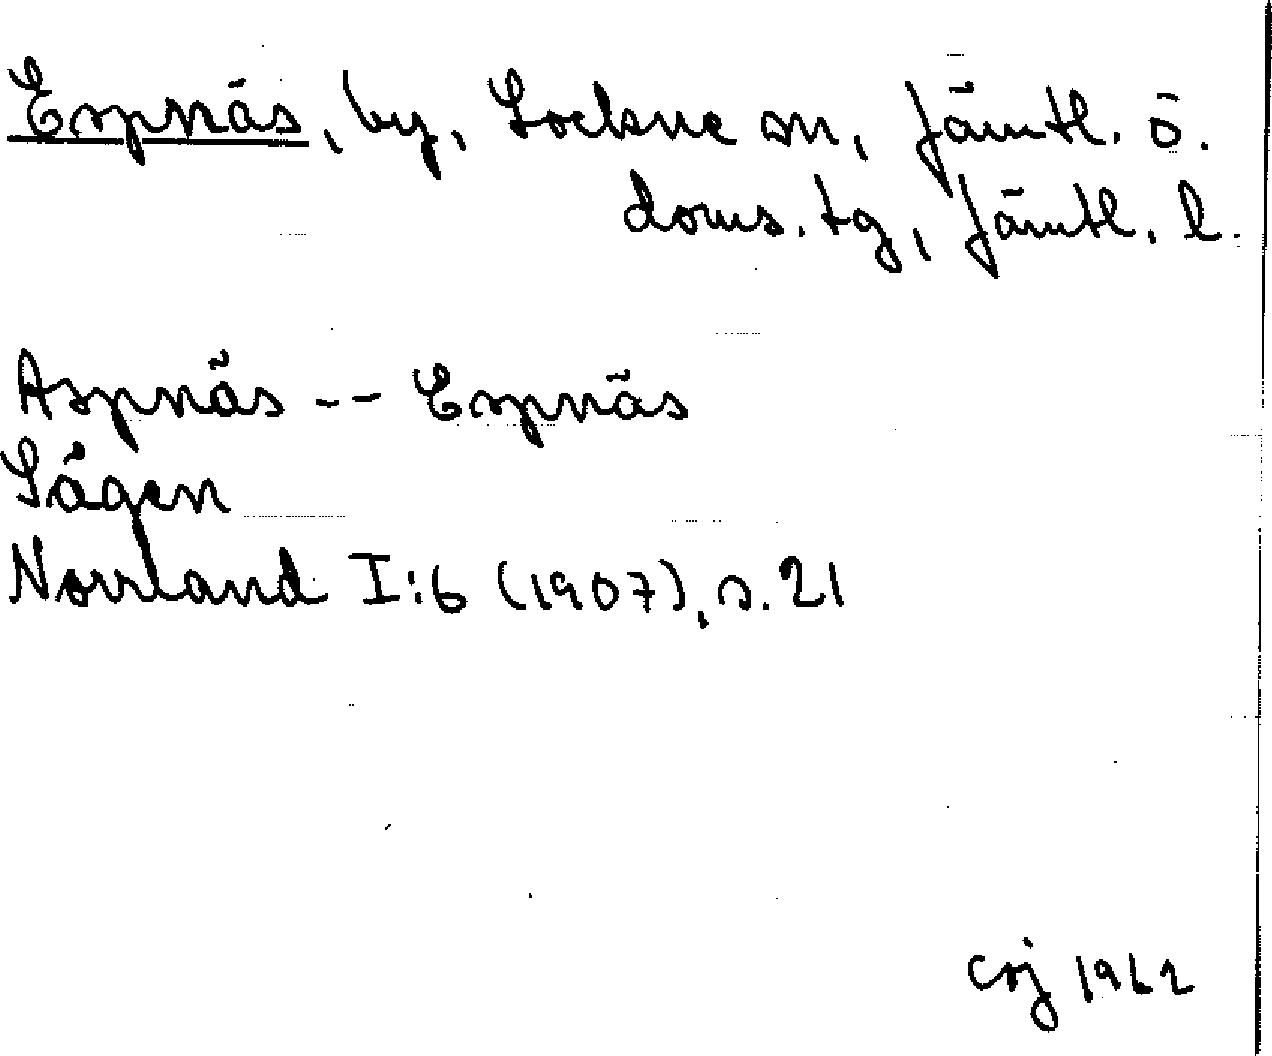 Espnäs, by, Lockne sn, Jämtl. ö.
doms. tg, Jämtl. l.
Aspnäs -- Espnäs
Sägen
Norrland I:6 (1907), s. 21
csj 1962